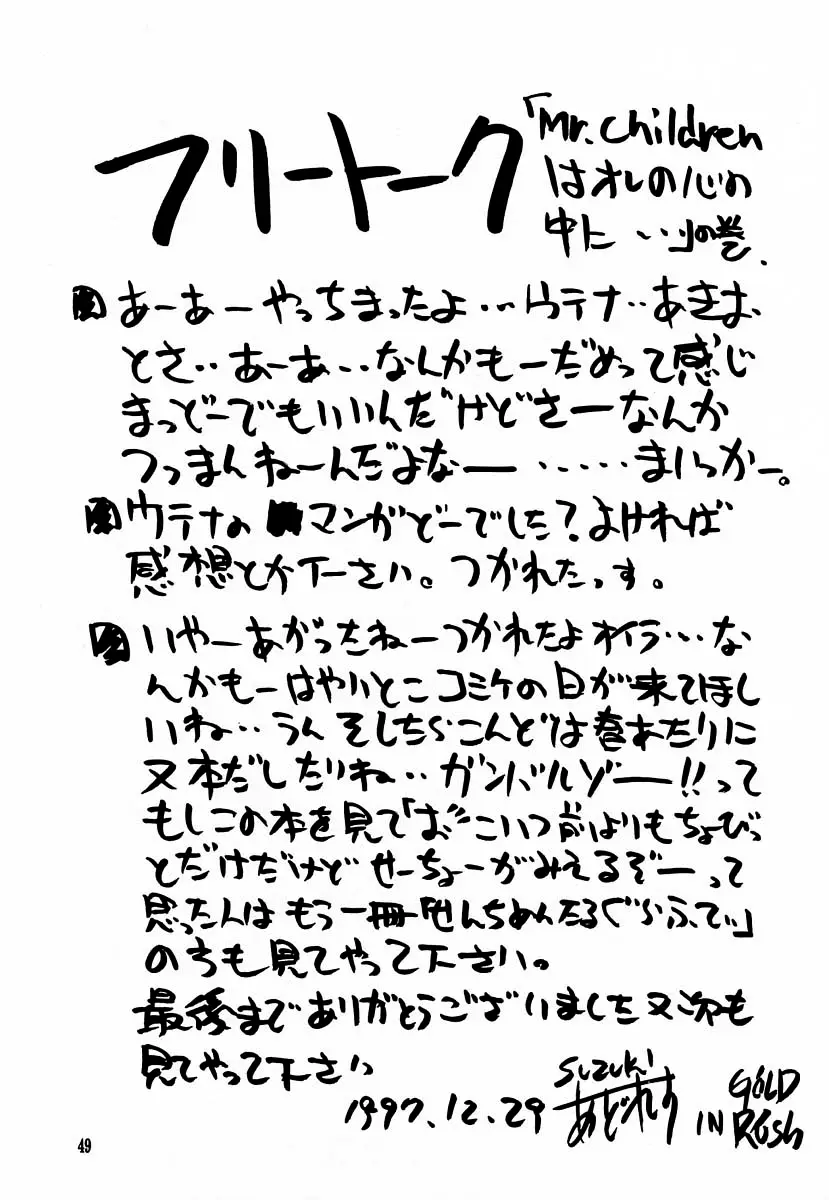 フリートーク
「Mr.Children
はオレの心の
中に・・・」の巻.
あーあーやっちまったよ・・・ウテナ・・あきお
とさ・・あーあ・・・なんかもーだめって感じ
まっどーでもいいんだけどさーなんか
つっまんねーんだよなー・・・・・まいっかー。
ウテナのマンガどーでした?よければ
感想とか下ーさい。つかれたっす。
いやーあがったねーつかれたよオイラ・・・な
んかもーはやいとこコミケの日が来てほし
いね・・うん そしたらこんどは春あたりに
又本だしたいね・・ガンバルゾー!!って
もしこの本を見て「お"こいつ前よりもちょびっ
とだけだけどせーちょーがみえるぞーって
思った人はもう一冊「せんちめんたるぐらふてぃ」
のうも見てやって下さい。
最後までありがとうございました又次も
見てやって下さい
1997.12.29
suzuki
あどれす
IN
GOLD
RUSh
49